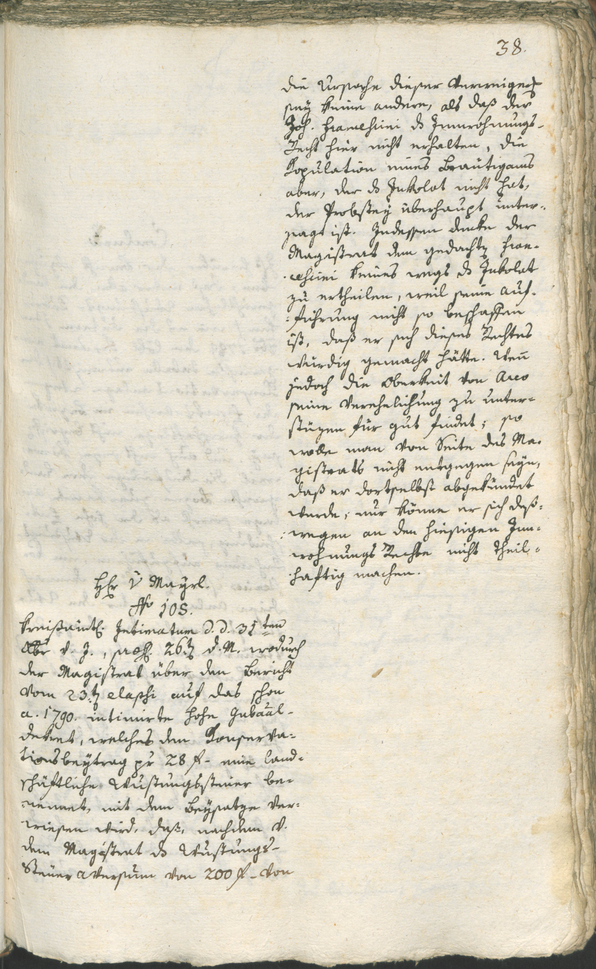 38.
die Ursache dieser Verweigerg
sey keine andere, als daß der
Joh. Franchini ds Innwohnungs-
Recht hier nicht erhalten, die
Kopulation eines Bräutigams
aber, der ds Inkolat nicht hat,
der Probstey überhaupt unter-
sagt ist. Indessen denke der
Magistrat dem gedachtn Fran-
chini keines wegs ds Inkolat
zu ertheilen, weil seine Auf-
führung nicht so beschaffen
ist, daß er sich dieses Rechtes
würdig gemacht hätte. Wenn
jedoch die Oberkeit von Arco
seine Verehelichung zu unter-
stüzen für gut findet; so
wolle man von Seite des Ma-
gistrats nicht entgegen seyn,
daß er dortselbst abgekündet
werde; nur könne er sich deß-
wegen an den hiesigen Inn-
wohnungs Rechte nicht theil-
haftig machen.
Hr v Mayrl.
No 108.
Kreisämtl. Intimatum d.d. 31ten
v. J., 26t d. M. wodurch
der Magistrat über den Bericht
vom 23t elapsi auf das schon
a. 1790. intimirte hohe Gubaal-
dekret, welches den Konserva-
tionsbeytrag pr 28 f - eine land-
schäftliche Wustungssteuer be-
nennet, mit dem Beysatze ver-
wiesen wird, daß, nachdem v.
dem Magistrat ds Wustungs-
Steuer aversum von 200 f - von